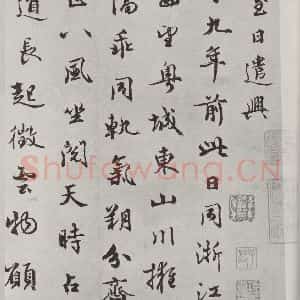 至日遣興
十九年前此日同浙江
西望粤城東山川擁
隔乖同軌氣朔分齊
八風坐閱天時占
道長起徵雲物願
Shufawang.CN